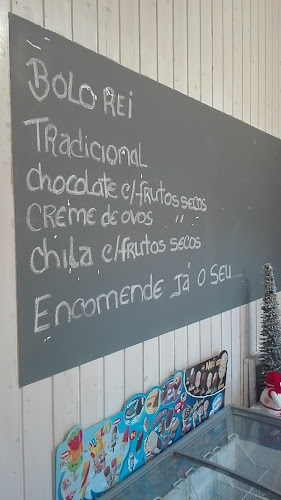 BOLO REI
TRADICIONAL
chocolate c/FRUTOS SECOS
CREME DE OVOS " "
chila c/FRUTOS SECOS
ENCOMENDE JÁ O SEU...